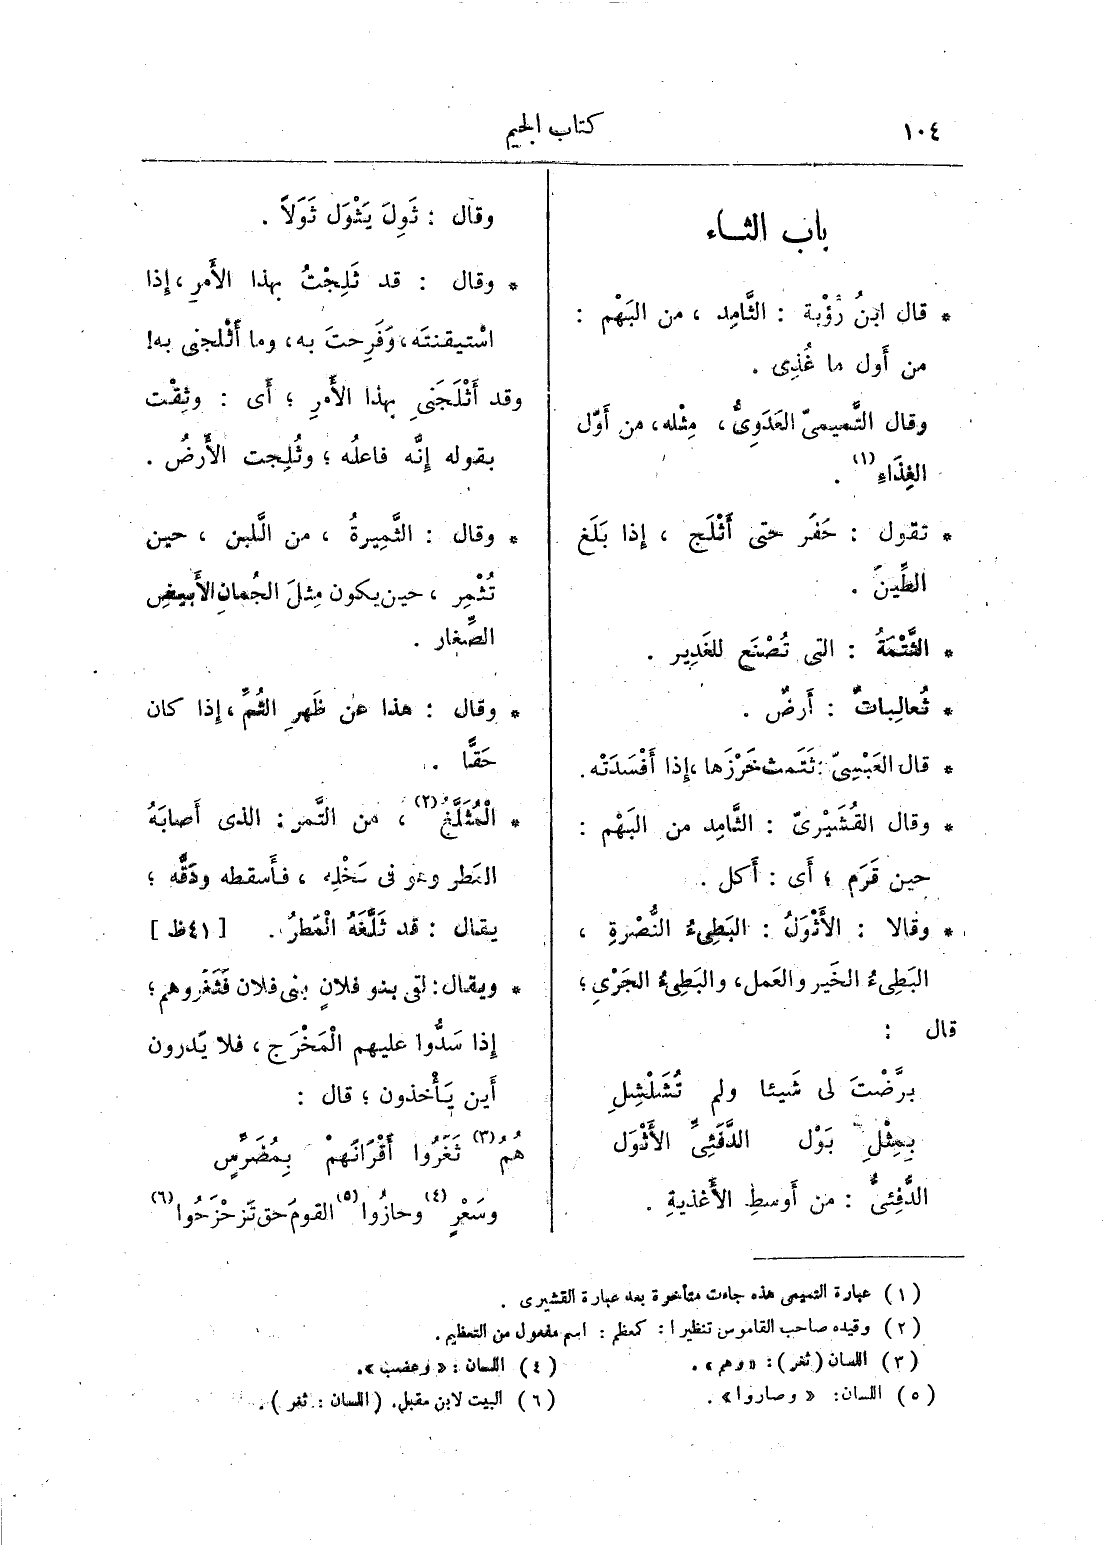 ١٠٤
كتاب الجيم
باب الثاء
* قال ابنُ رُؤْبة : الثَّامِد ، من البَهْم :
من أول ما غُذِى .
وقال التَّميمىّ العَدَوِىُّ ، مِثْله ، من أَوّل
الغِذَاءِ (١) .
* تقول : حَفَر حتى أَثْلَج ، إذا بَلَغ
الطِّينَ .
* الثَّتْمَةُ : التى تُصْنَع للغَدِير .
* ثُعالِباتٌ : أَرضٌ .
* قال العَبْسِىّ : ثَتَمت خَرْزَها ، إذا أَفْسَدَتْه .
* وقال القُشَيْرىّ : الثَّامِد من البَهْم :
حين قَرَم ؛ أى : أَكل .
* وقالا : الأَثْوَلُ : البَطِىءُ النُّصْرةِ ،
البَطِىءُ الخَير والعَمل ، والبَطِىءُ الجَرْىِ ؛
قال :
برَّضْتَ لى شَيئا ولم تُشَلْشِلِ
بِمِثْلِ بَوْل الدَّفَئِىِّ الأَثْوَل
الدَّفِئىُّ : من أَوسطِ الأَغْذيةِ .
وقال : ثَوِلَ يَثْوَل ثَوَلاً .
* وقال : قد ثَلِجْتُ بهذا الأَمرِ ، إذا
اسْتيقنتَه ، وَفَرِحتَ به ، وما أَثْلجنى به !
وقد أَثْلَجَنىِ بهذا الأَمرِ ؛ أى : وثِقْت
بقوله إنَّه فاعلُه ؛ وثُلِجت الأَرضُ .
* وقال : الثَّمِيرةُ ، من اللَّبن ، حين
تُثْمِر ، حين يكون مِثلَ الجُمانِ الأَبيضِ
الصِّغار .
* وقال : هذا عن ظَهرِ الثُمِّ ، إذا كان
حَقًّا .
* الْمُثَلَّغُ (٢) ، من التَّمر : الذى أَصابَهُ
المَطر وهو فى نَخْلِه ، فأَسقطه ودَقَّه ؛
يقال : قد ثَلَّغَهُ الْمَطرُ . [ ٤١ظ ]
* ويقال : لقى بنو فلانٍ بنى فلان فَثَغَروهم ؛
إذا سَدُّوا عليهم الْمَخْرَج ، فلا يَدرون
أَين يَأْخذون ؛ قال :
هُمُ (٣) ثَغَرُوا أَقْرَانَهمْ بِمُضَرَّسٍ
وسَعْرٍ (٤) وحازُوا (٥) القومَ حتى تَزحْزَحُوا (٦)
(١) عبارة التميمى هذه جاءت متأخرة بعد عبارة القشيرى .
(٢) وقيده صاحب القاموس تنظيرا : كمعظم : اسم مفعول من التعظيم .
(٣) اللسان (ثغر) : «وهم» .
(٤) اللسان : «وعضب» .
(٥) اللسان : «وصاروا» .
(٦) البيت لابن مقبل . (اللسان : ثغر) .